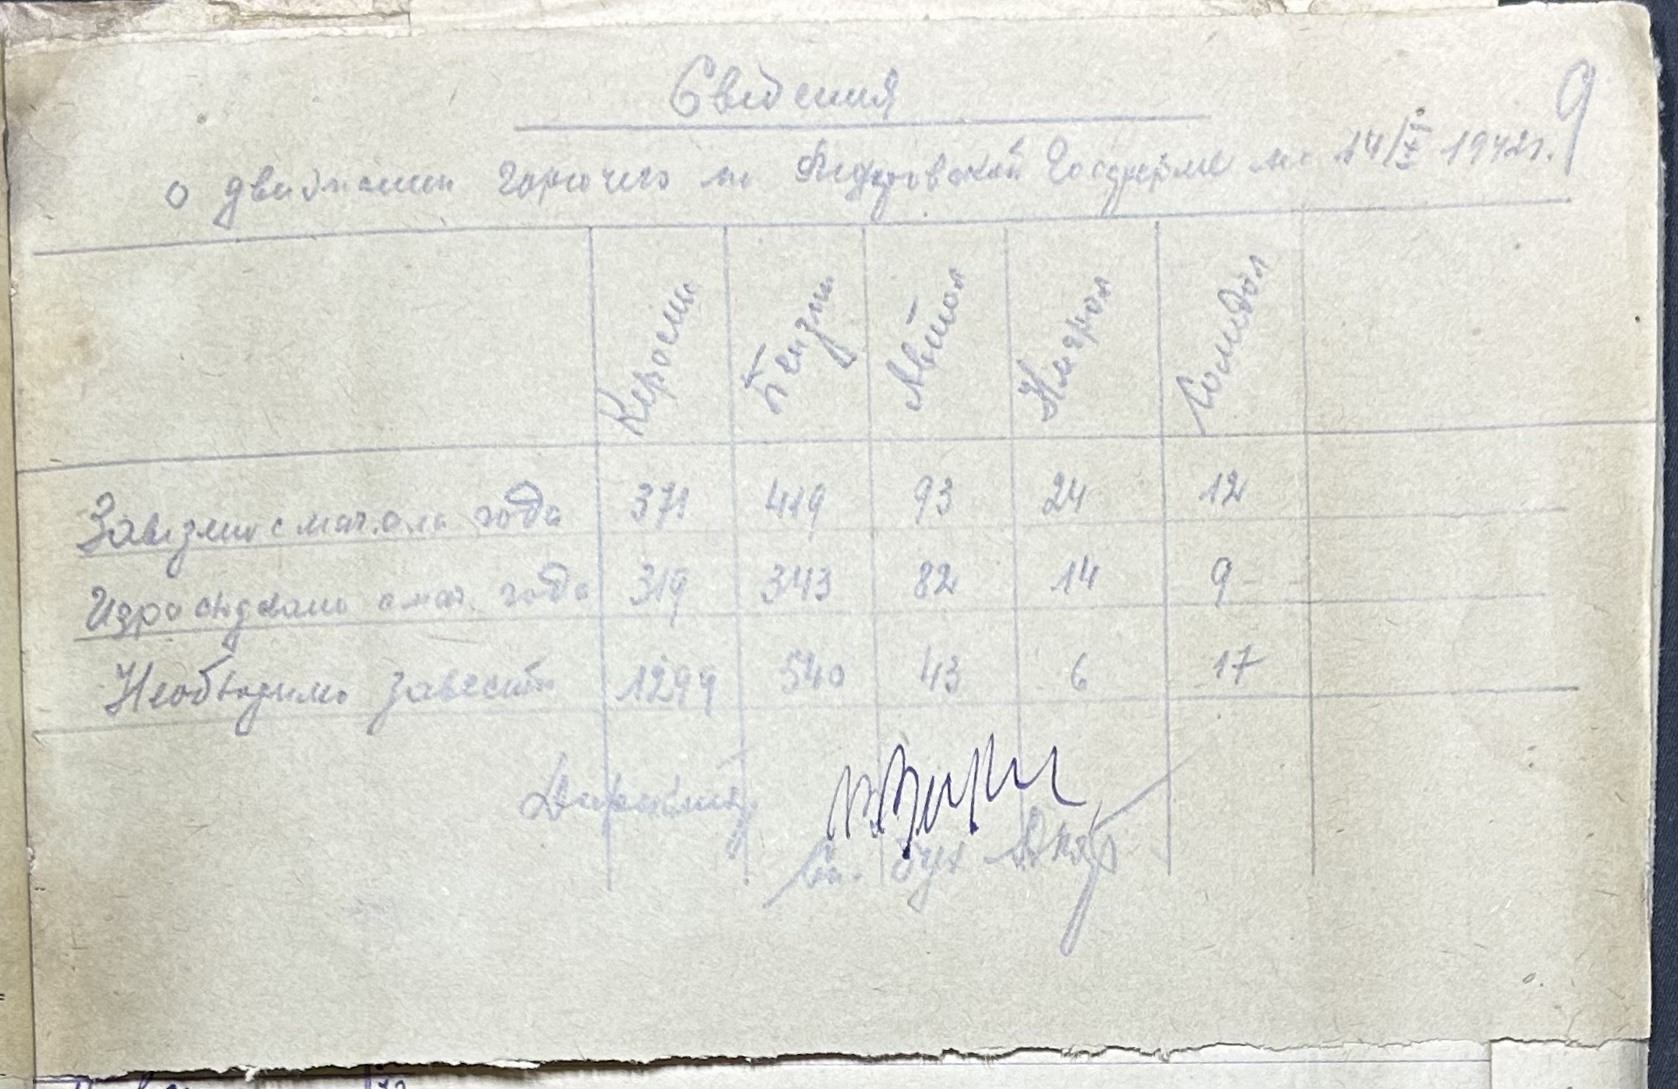 9
Сведения
о движении горючего по Федоровской Госферме на 14/X 1942г.
Керосин Бензин Автол Нигрол Солидол
Завезено с начала года 371 419 93 24 12
Израсходовано с нач. года 319 343 82 14 9
Необходимо завести 1299 540 43 6 17
Директор
Ст. бух